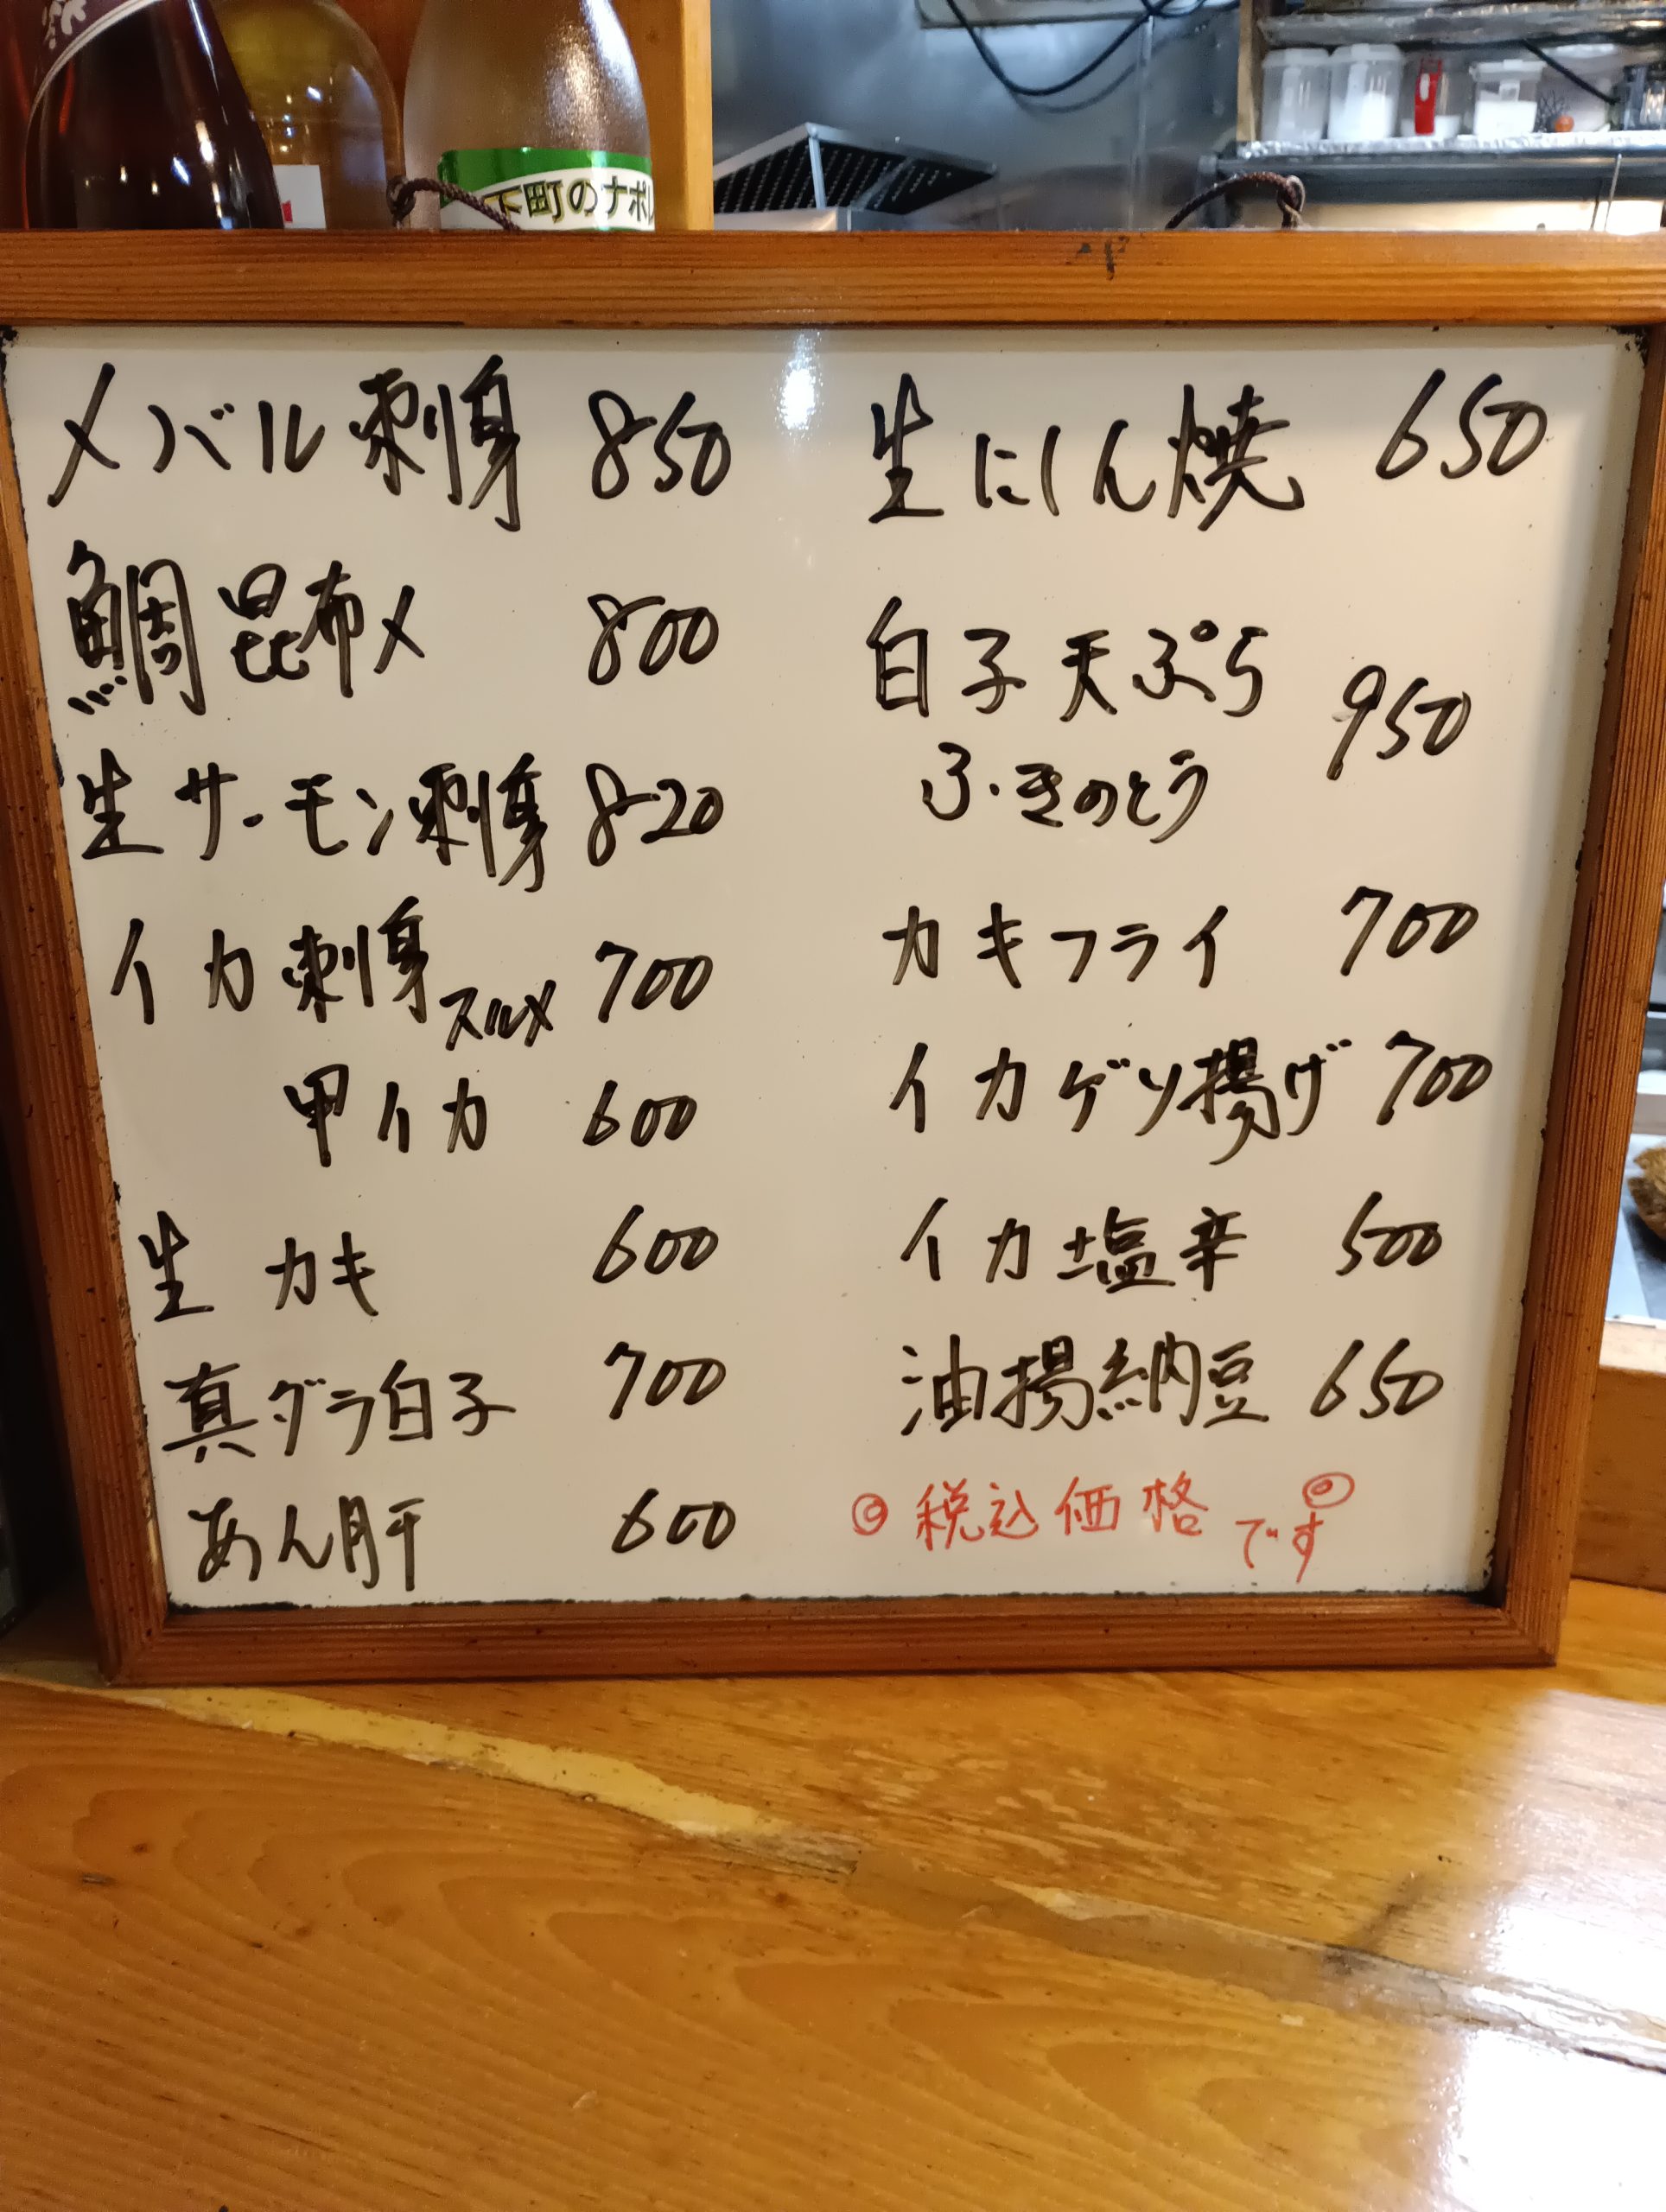 下町のナポレ
メバル刺身 850
鯛昆布〆 800
生サーモン刺身 820
イカ刺身 スルメ 700
甲イカ 600
生カキ 600
真ダラ白子 700
あん肝 600
生にしん焼 650
白子天ぷら 950
ふきのとう
カキフライ 700
イカゲソ揚げ 700
イカ塩辛 500
油揚納豆 650
◎税込価格です◎